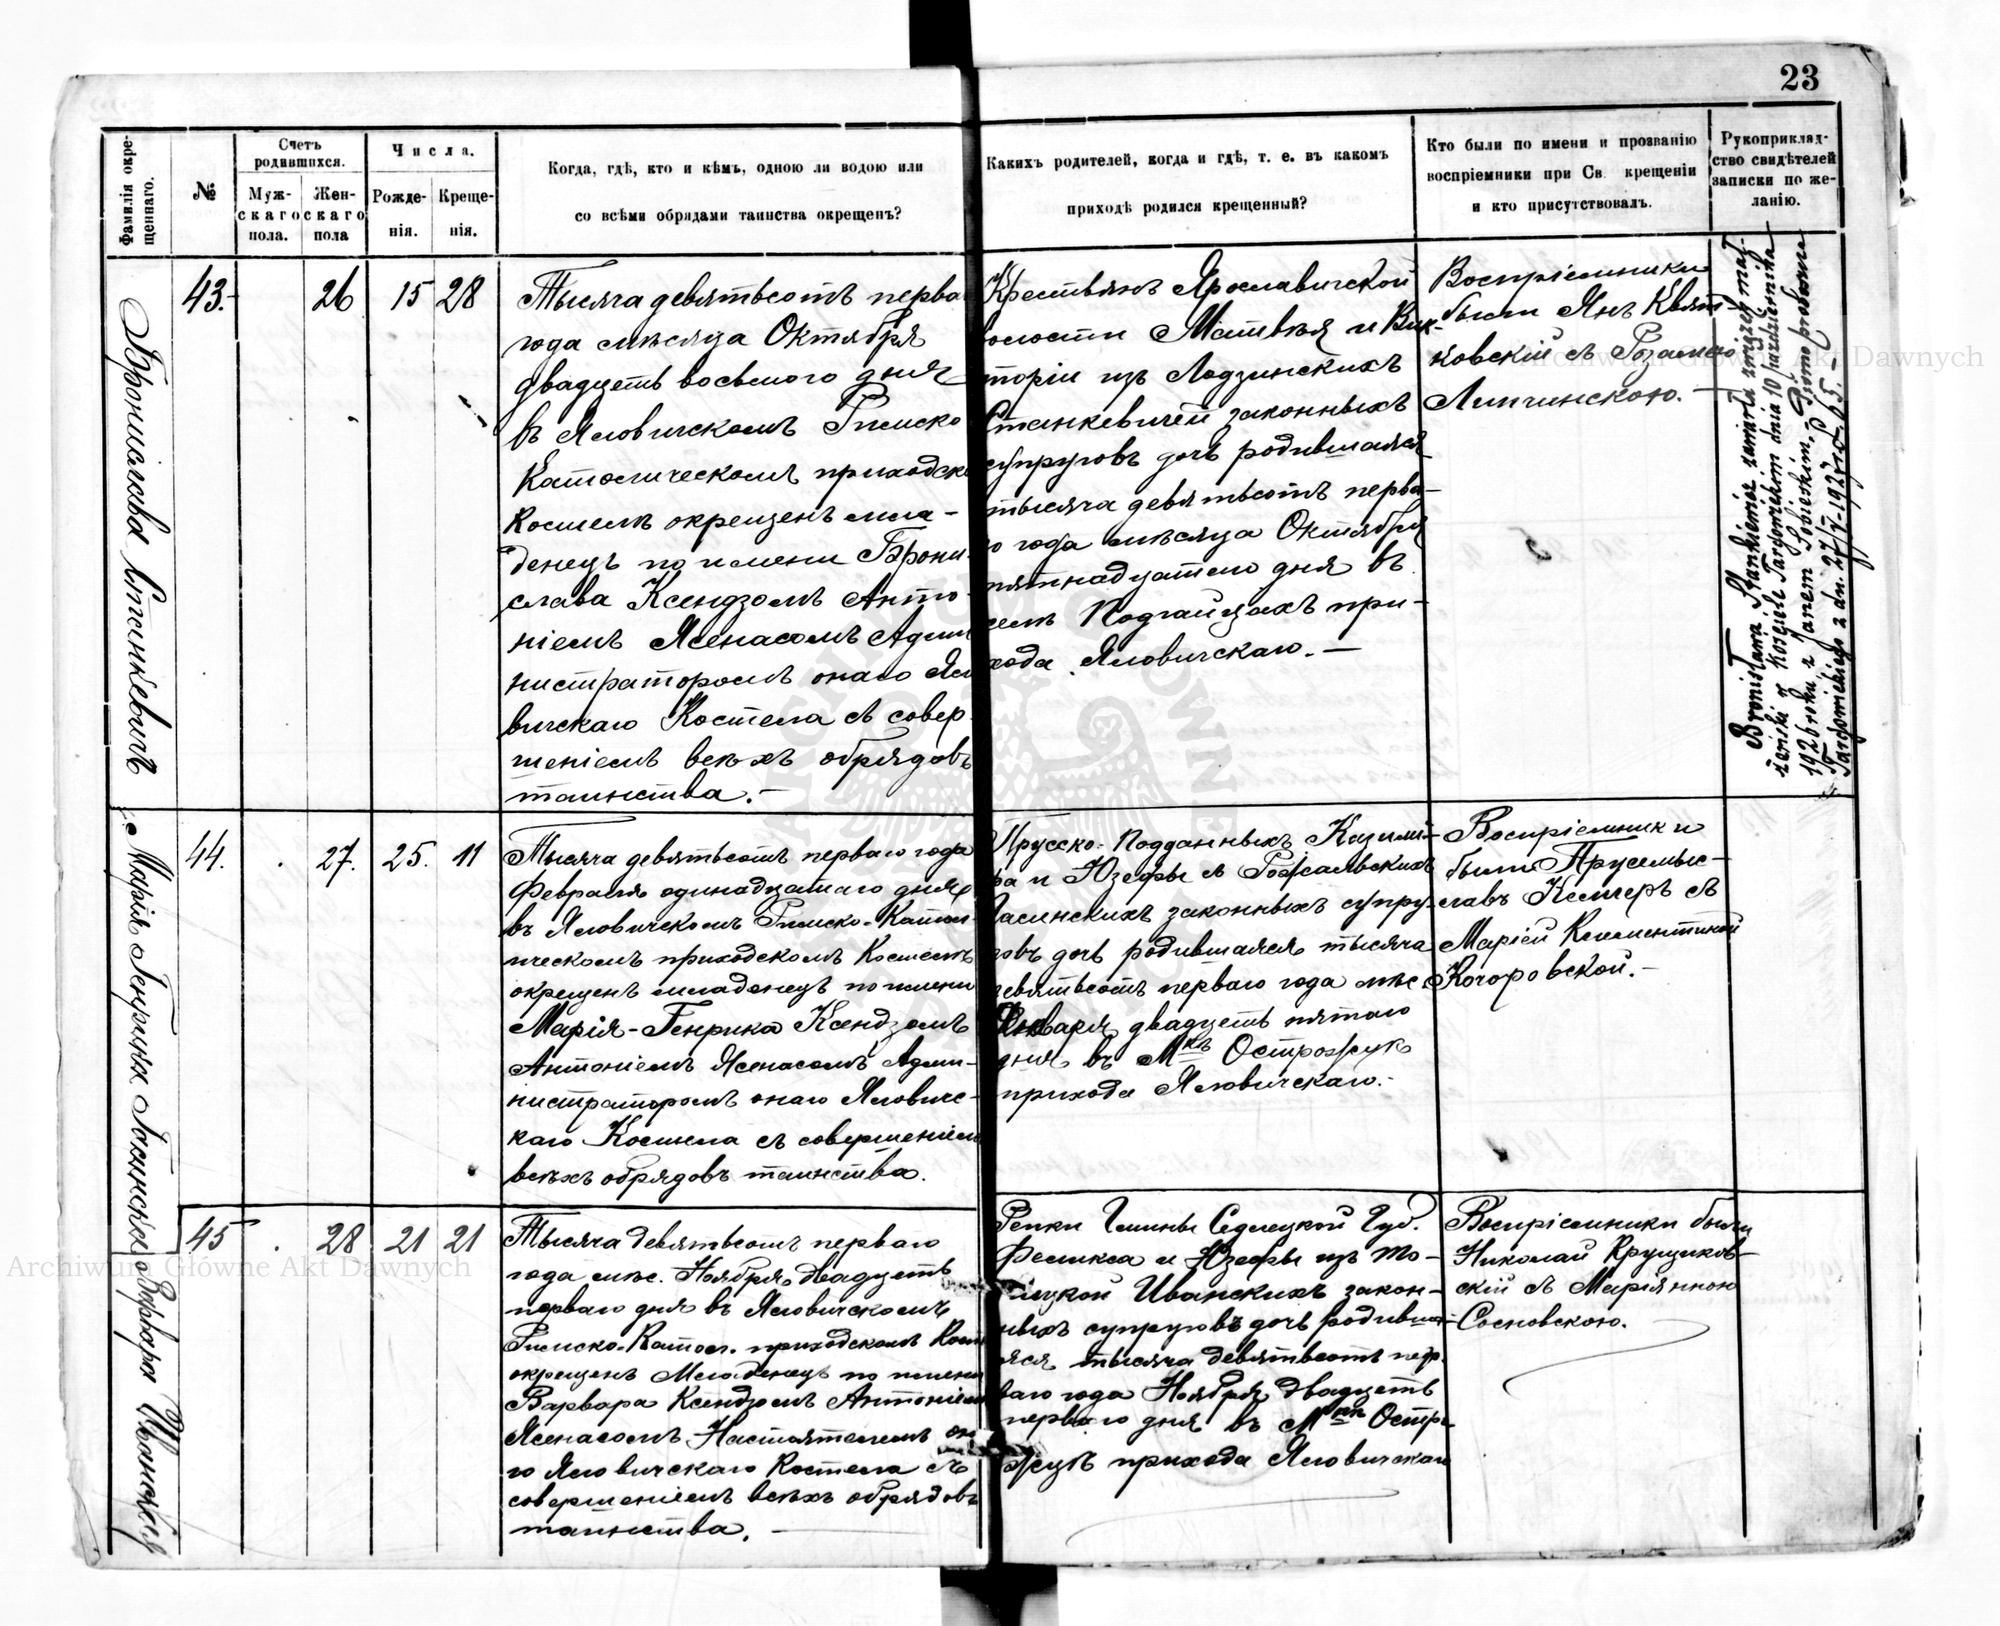 23
Фамилія окре-
щеннаго.
№
Счетъ
родившихся.
Муж-
скаго
пола.
Жен-
скаго
пола
Числа.
Рожде-
нія.
Креще-
нія.
Когда, гдѣ, кто и кѣмъ, одною ли водою или
со всѣми обрядами таинства окрещенъ?
Какихъ родителей, когда и гдѣ, т. е. въ какомъ
приходѣ родился крещенный?
Кто были по имени и прозванію
воспріемники при Св. крещеніи
и кто присутствовалъ.
Рукоприклад-
ство свидѣтелей
записки по же-
ланію.
Бронислава Станкевичъ
43.-
26
15
28
Тысяча девятьсотъ перва
года мѣсяца Октября
двадцать восьмого дня
въ Яловичскомъ Римско
Католическомъ приходск
Костелѣ окрещенъ мла-
денецъ по имени Брони-
слава Ксендзомъ Анто-
ніемъ Ясенасомъ Адми
нистраторомъ онаго Яло
вичскаго Костела съ совер-
шеніемъ всѣхъ обрядовъ
таинства.-
Крестьянъ Ярославичской
волости Матвѣя и Вик-
торіи изъ Лодзинскихъ
Станкевичей законныхъ
супруговъ дочь родившаяся
тысяча девятьсотъ перва-
го года мѣсяца Октября
пятнадцатаго дня въ
селѣ Подгайцахъ при-
хода Яловичскаго.-
Воспріемники
были Янъ Квят-
ковскій съ Розаліею
Липчинскою.-
Bronisława Stankiewicz zawarła związek mał-
żeński w Kościele Targowickim dnia 10 października
1926 roku z Janem Sobieskim.- Pismo probosz.
Targowickiego z dn. 27/I-1927 r. № 65.-
Марія Генрика Ясинская
44.
27.
25.
11
Тысяча девятьсотъ перваго года
Февраля одинадцатаго дня
въ Яловичскомъ Римско-Катол
ическомъ приходскомъ Костелѣ
окрещенъ младенецъ по имени
Марія-Генрика Ксендзомъ
Антоніемъ Ясенасомъ Адми-
нистраторомъ онаго Яловичс-
каго Костела съ совершеніем
всѣхъ обрядовъ таинства.
Прусско-Подданныхъ Казими-
ра и Юзефы съ
Ясинскихъ законныхъ супру-
говъ дочь родившаяся тысяча
девятьсотъ перваго года мѣс
Января двадцать пятаго
дня въ Мкѣ Острожук
прихода Яловичскаго.-
Воспріемники
были Пруемыс-
лавъ Кемперъ съ
Маріей Клементиной
Кочоровской.-
Варвара Иванская
45
28
21
21
Тысяча девятьсотъ перваго
года мѣс. Ноября двадцать
перваго дня въ Яловичскомъ
Римско-Катол. приходскомъ Кост
окрещенъ Младенецъ по имени
Варвара Ксендзомъ Антоніем
Ясенасомъ Настоятелемъ он
го Яловичскаго Костела съ
совершеніемъ всѣхъ обрядовъ
таинства.-
Репки Гмины Седлецкой Губ.
Феликса и Юзефы изъ То-
Иванскихъ закон-
ныхъ супруговъ дочь родивш-
аяся тысяча девятьсотъ пер-
ваго года Ноября двадцать
перваго дня въ Мкѣ Остро-
жцѣ прихода Яловичскаго
Воспріемники были
Николай Крущиков-
скій съ Маріянною
Сосновскою.
Archiwum Główne Akt Dawnych
Archiwum Główne Akt Dawnych